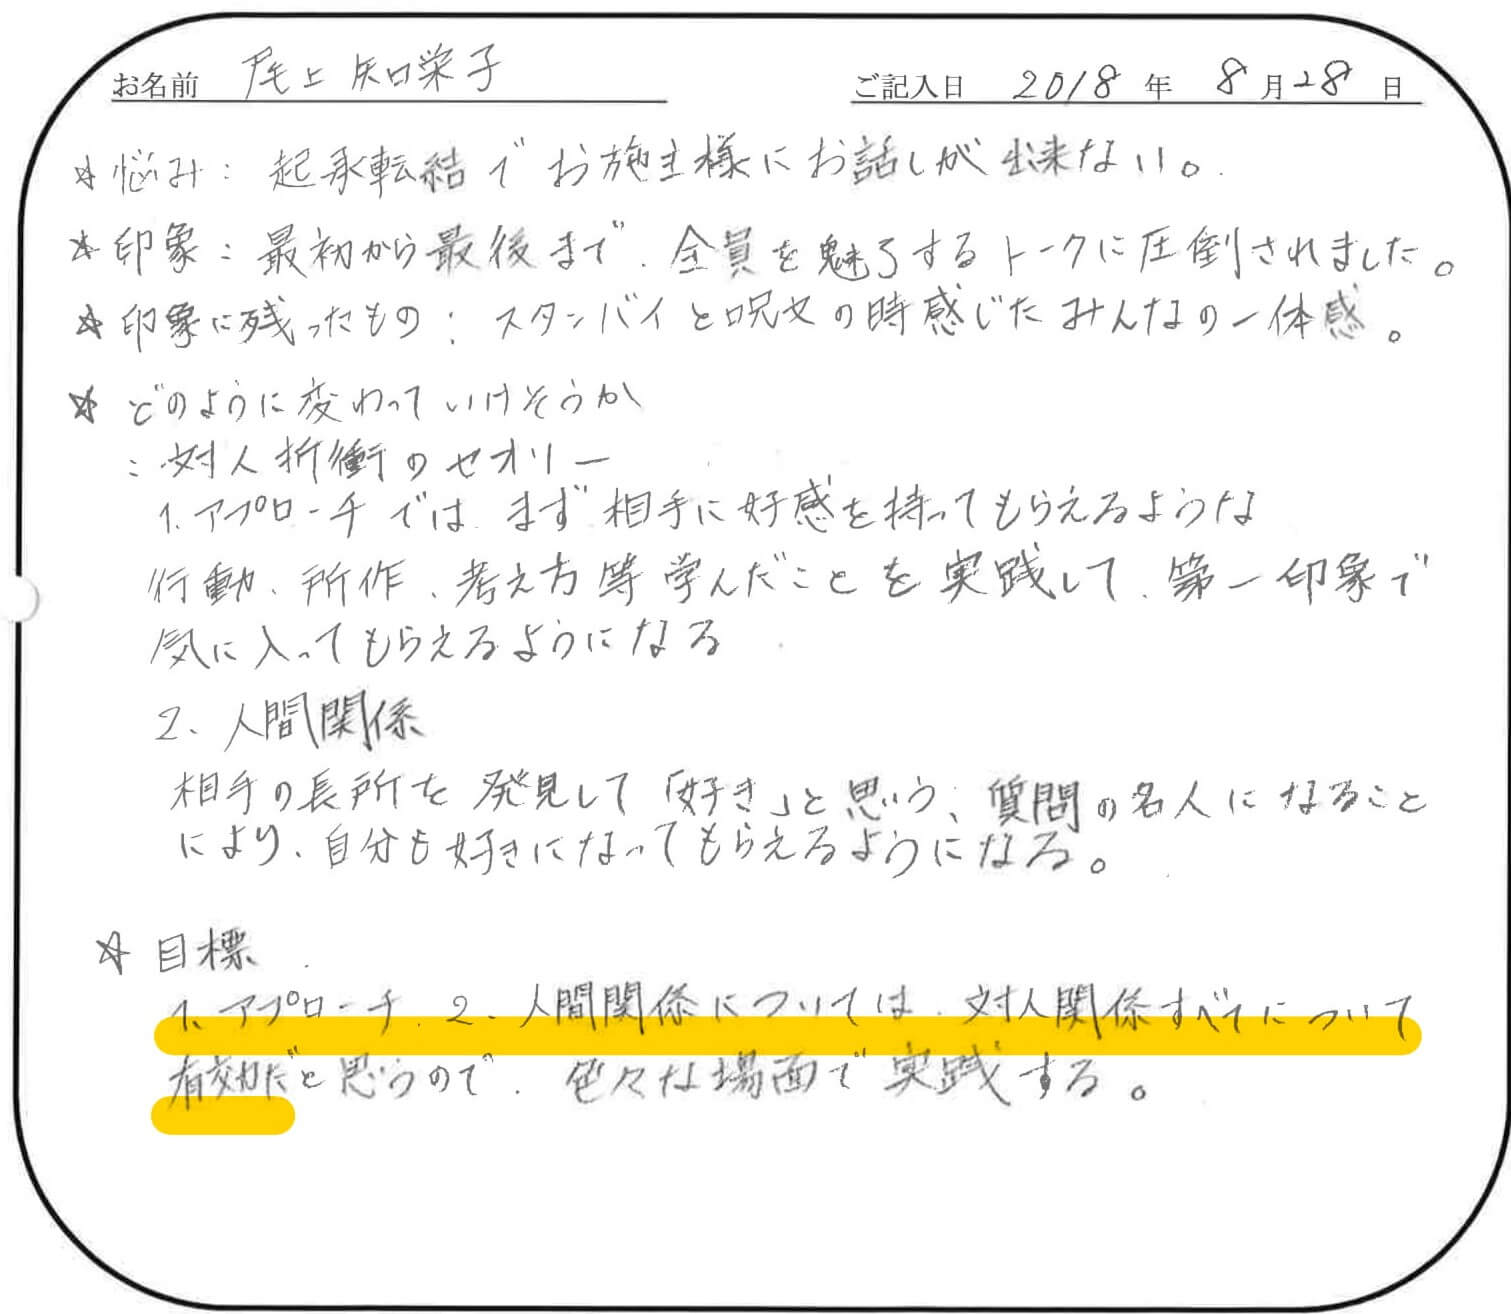 お名前 尾上 知栄子 ご記入日 2018 年 8 月 28 日
☆ 悩み：起承転結でお施主様にお話しが出来ない。
☆ 印象：最初から最後まで、全員を魅了するトークに圧倒されました。
☆ 印象に残ったもの：スタンバイと呪文の時感じたみんなの一体感。
☆ どのように変わっていけそうか
：対人折衝のセオリー
1. アプローチでは、まず相手に好感を持ってもらえるような
行動、所作、考え方等学んだことを実践して、第一印象で
気に入ってもらえるようになる
2、人間関係
相手の長所を発見して「好き」と思う、質問の名人になること
により、自分も好きになってもらえるようになる。
☆ 目標
1、アプローチ、2、人間関係については、対人関係すべてについて
有効だと思うので、色々な場面で実践する。